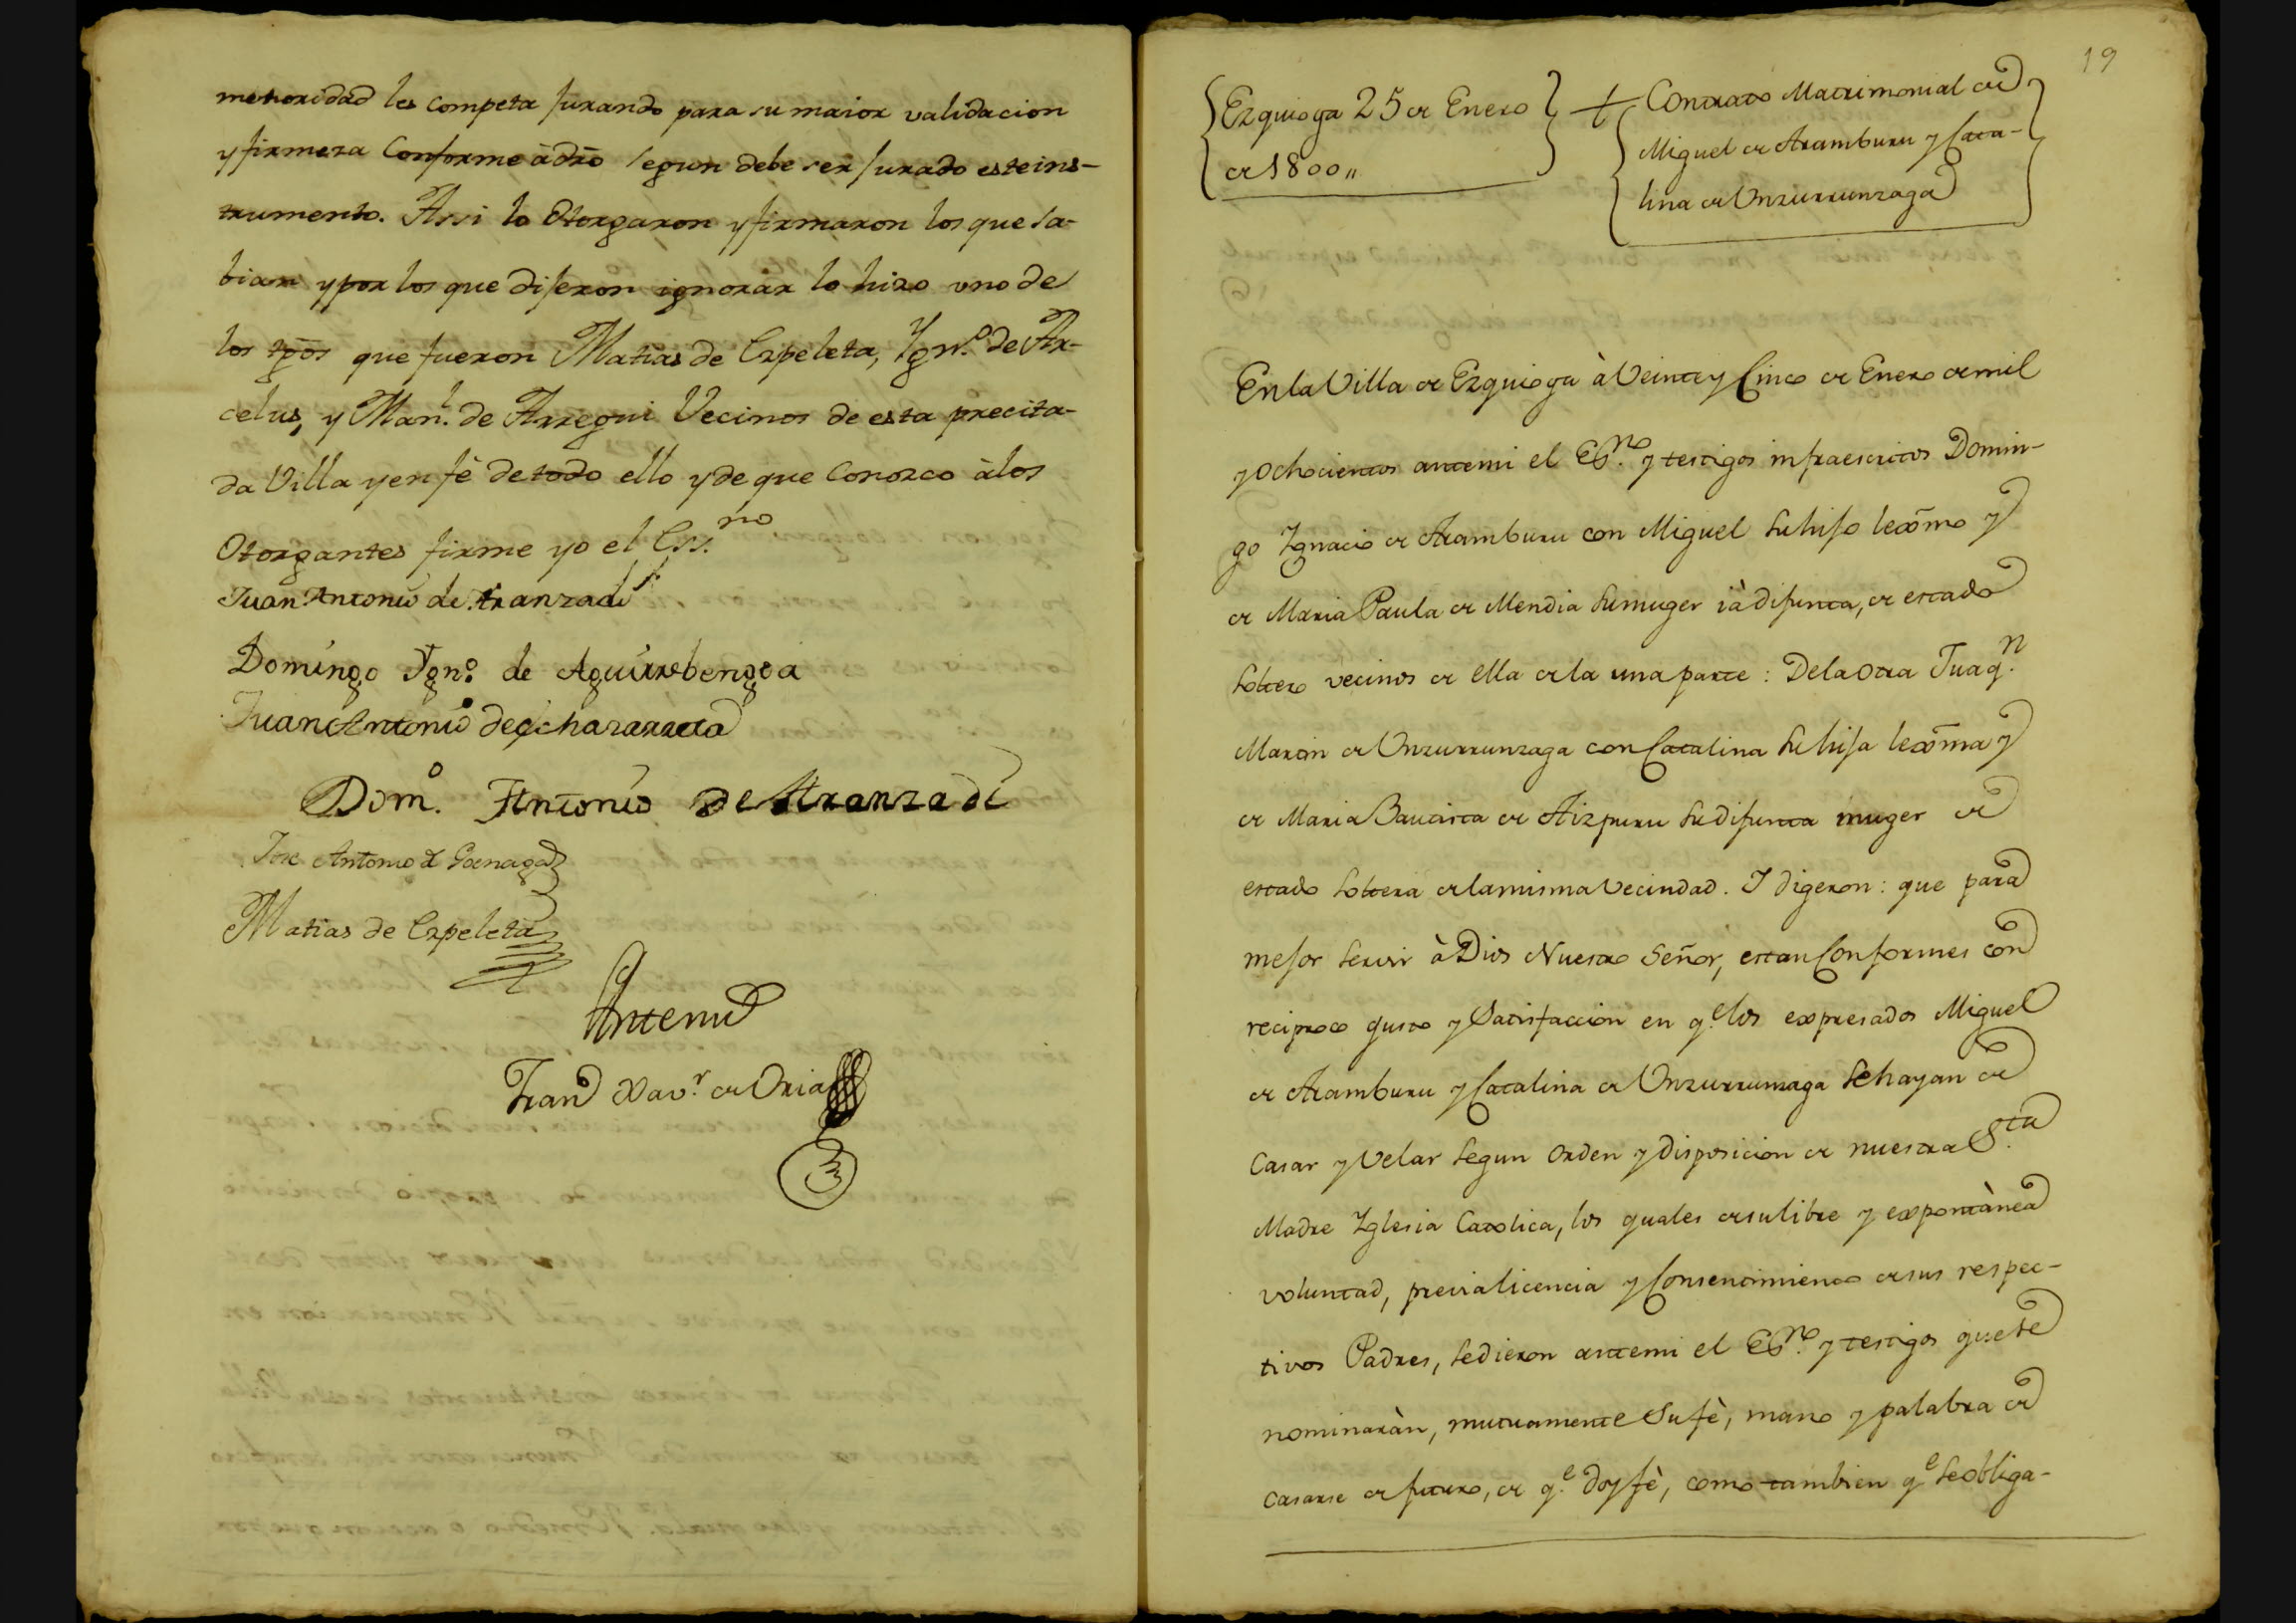 menoridad les competa jurando para su maior validacion
y firmeza Conforme à dro segun debe ser jurado este ins-
trumento. Assi lo Otorgaron y firmaron los que sa-
bian y por los que dijeron ignorar lo hizo vno de
los tgos que fueron Matias de Ezpeleta, Ygn.º de Ar-
celus, y Man.l de Arregui Vecinos de esta precita-
da Villa y en fè de todo ello y de que Conozco à los
Otorgantes firme yo el Ess.no
Juan Antonio de Aranzadi
Domingo Ygn.º de Aguirrebengoa
Juan Antonio de echazarreta
Dom.º Antonio de Aranzadi
Jose Antonio de Goenaga
Matias de Ezpeleta
Antemi
Fran Xav.r de Oria
19
Ezquioga 25 de Enero
de 1800,,
+ Contrato Matrimonial de
Miguel de Aramburu y Cata-
lina de Unzurrunzaga
En la Villa de Ezquioga à Veinte y Cinco de Enero de mil
y Ochocientos antemi el Es.no y testigos infraescritos Domin-
go Ignacio de Aramburu con Miguel su hijo lexmo y
de Maria Paula de Mendia su muger ià difunta, de estado
soltero vecinos de ella de la una parte: De la Otra Juaq.n
Martin de Unzurrunzaga con Catalina su hija lexma y
de Maria Bautista de Aizpuru su difunta muger de
estado soltera de la misma Vecindad. I digeron: que para
mejor servir à Dios Nuestro Señor, estan Conformes con
reciproco gusto y Satisfaccion en q.e los expresados Miguel
de Aramburu y Catalina de Unzurrunzaga se hayan de
Casar y Velar segun Orden y disposicion de nuestra S.ta
Madre Iglesia Catolica, los quales de su libre y expontànea
voluntad, previa licencia y Consentimiento de sus respec-
tivos Padres, se dieron antemi el Es.no y testigos que se
nominaràn, mutuamente su fè, mano y palabra de
casarse de futuro, de q.e doy fè, como tambien q.e se obliga-